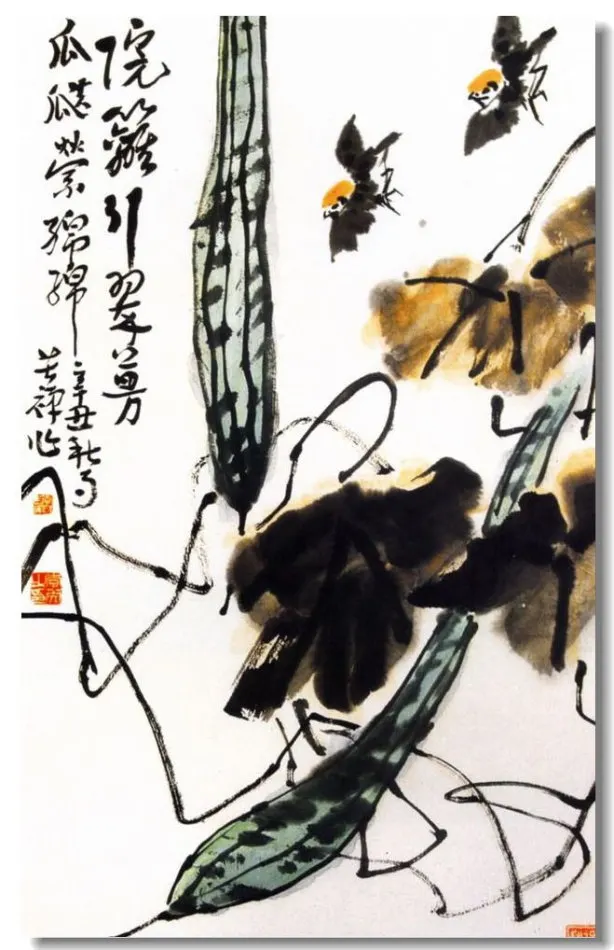 院籬引翠蔓
瓜瓞縈綿綿
辛丑秋
苦禪作